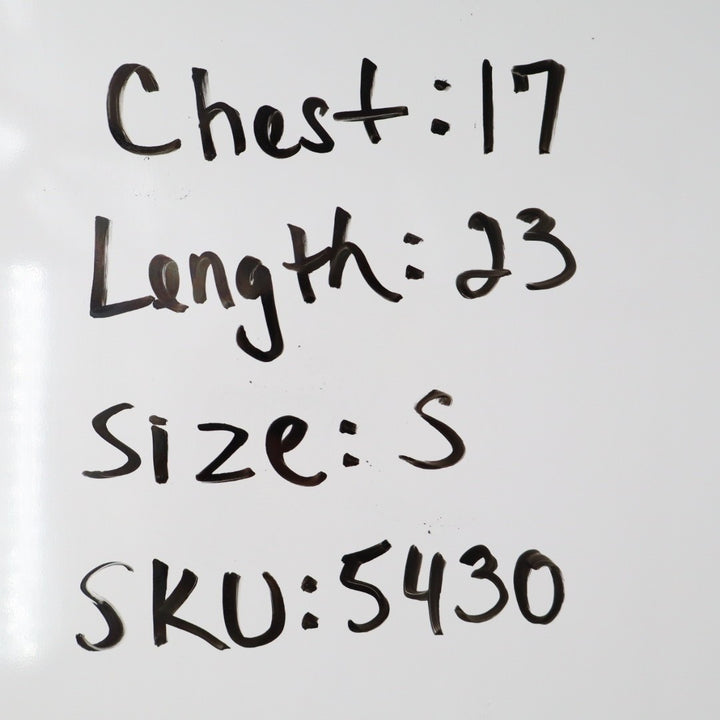 Chest:17
Length:23
Size:S
SKU:5430